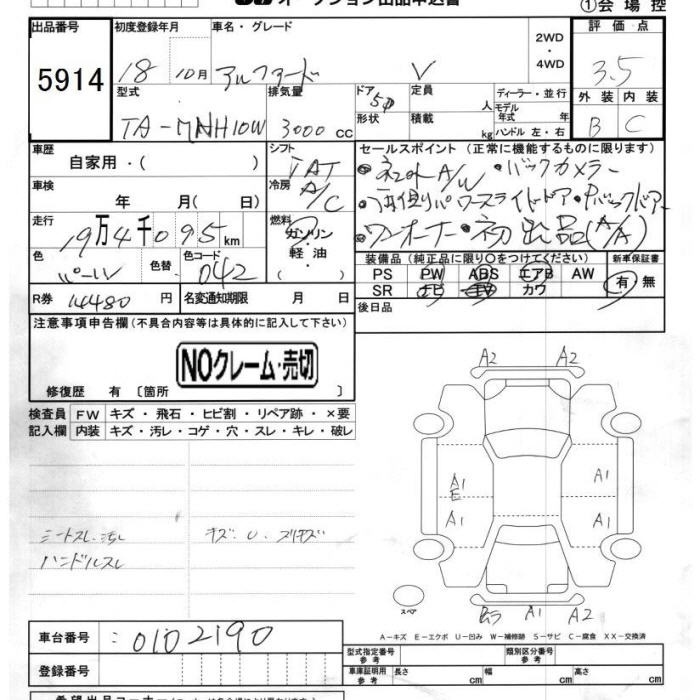 ①会場控
出品番号
5914
初度登録年月
18 10月
車名・グレード
アルファード V
2WD
・
4WD
評価点
3.5
外装 内装
B C
型式
TA-MNH10W
排気量
3000 cc
ドア
5
形状
定員
人
積載
kg
ディーラー・並行
モデル
年式 年
ハンドル 左・右
車歴
自家用・( )
シフト
AT
冷房
A/C
車検
年 月( 日)
走行
19万4千095km
燃料
ガソリン
・
軽油
色
パール
色替
色コード
042
R券 14480 円
名変通知期限 月 日
セールスポイント (正常に機能するものに限ります)
A/W ・バックカメラー
パワースライドドア・Pバックドアー
・ワンオーナー・初出品(A/A)
装備品(純正品に限り○をつけてください)
PS PW ABS エアB AW
SR ナビ カワ
新車保証書
有・無
後日品
注意事項申告欄(不具合内容等は具体的に記入して下さい)
NOクレーム・売切
修復歴 有 〔箇所 〕
検査員 FW キズ・飛石・ヒビ割・リペア跡・×要
記入欄 内装 キズ・汚レ・コゲ・穴・スレ・キレ・破レ
シートスレ・汚レ
キズ・U・スリキズ
ハンドルスレ
A2 A2
A1
E
A1
A1
A1
スペア
A1 A2
A-キズ E-エクボ U-凹み W-補修跡 S-サビ C-腐食 XX-交換済
車台番号 : 0102190
登録番号
型式指定番号
参考
類別区分番号
参考
車庫証明用
参考
長さ cm 幅 cm 高さ cm